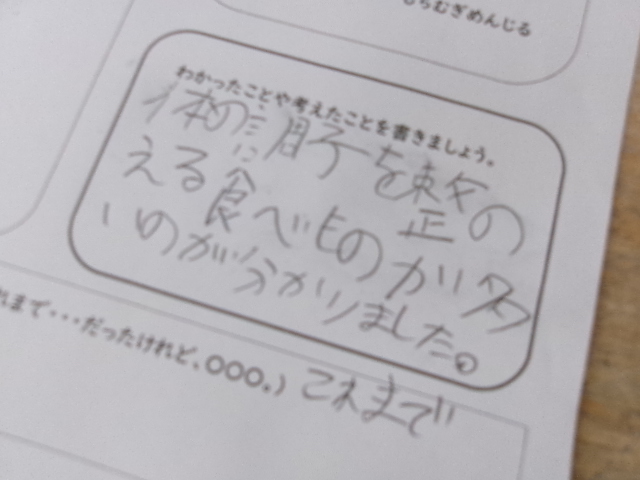 もちむぎめんじる
わかったことや考えたことを書きましょう。
体の調子を整の
える食べものが多
いのが分かりました。
れまで・・・だったけれど、○○○。）これまで